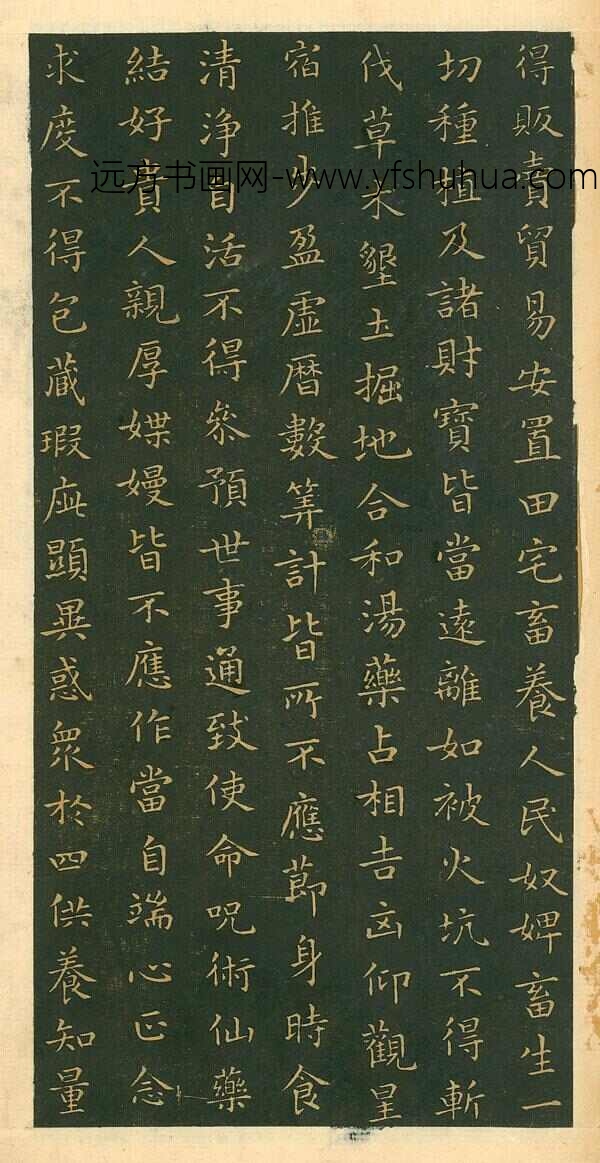 得販責貿易安置田宅畜養人民奴婢畜生一
切種植及諸財寶皆當遠離如被火坑不得斬
伐草木墾土掘地合和湯藥占相吉凶仰觀星
宿推步盈虛曆數筭計皆所不應節身時食
清淨自活不得叅預世事通致使命呪術仙藥
結好貴人親厚媟嫚皆不應作當自端心正念
求度不得包藏瑕疵顯異惑衆於四供養知量
远方书画网-www.yfshuhua.com